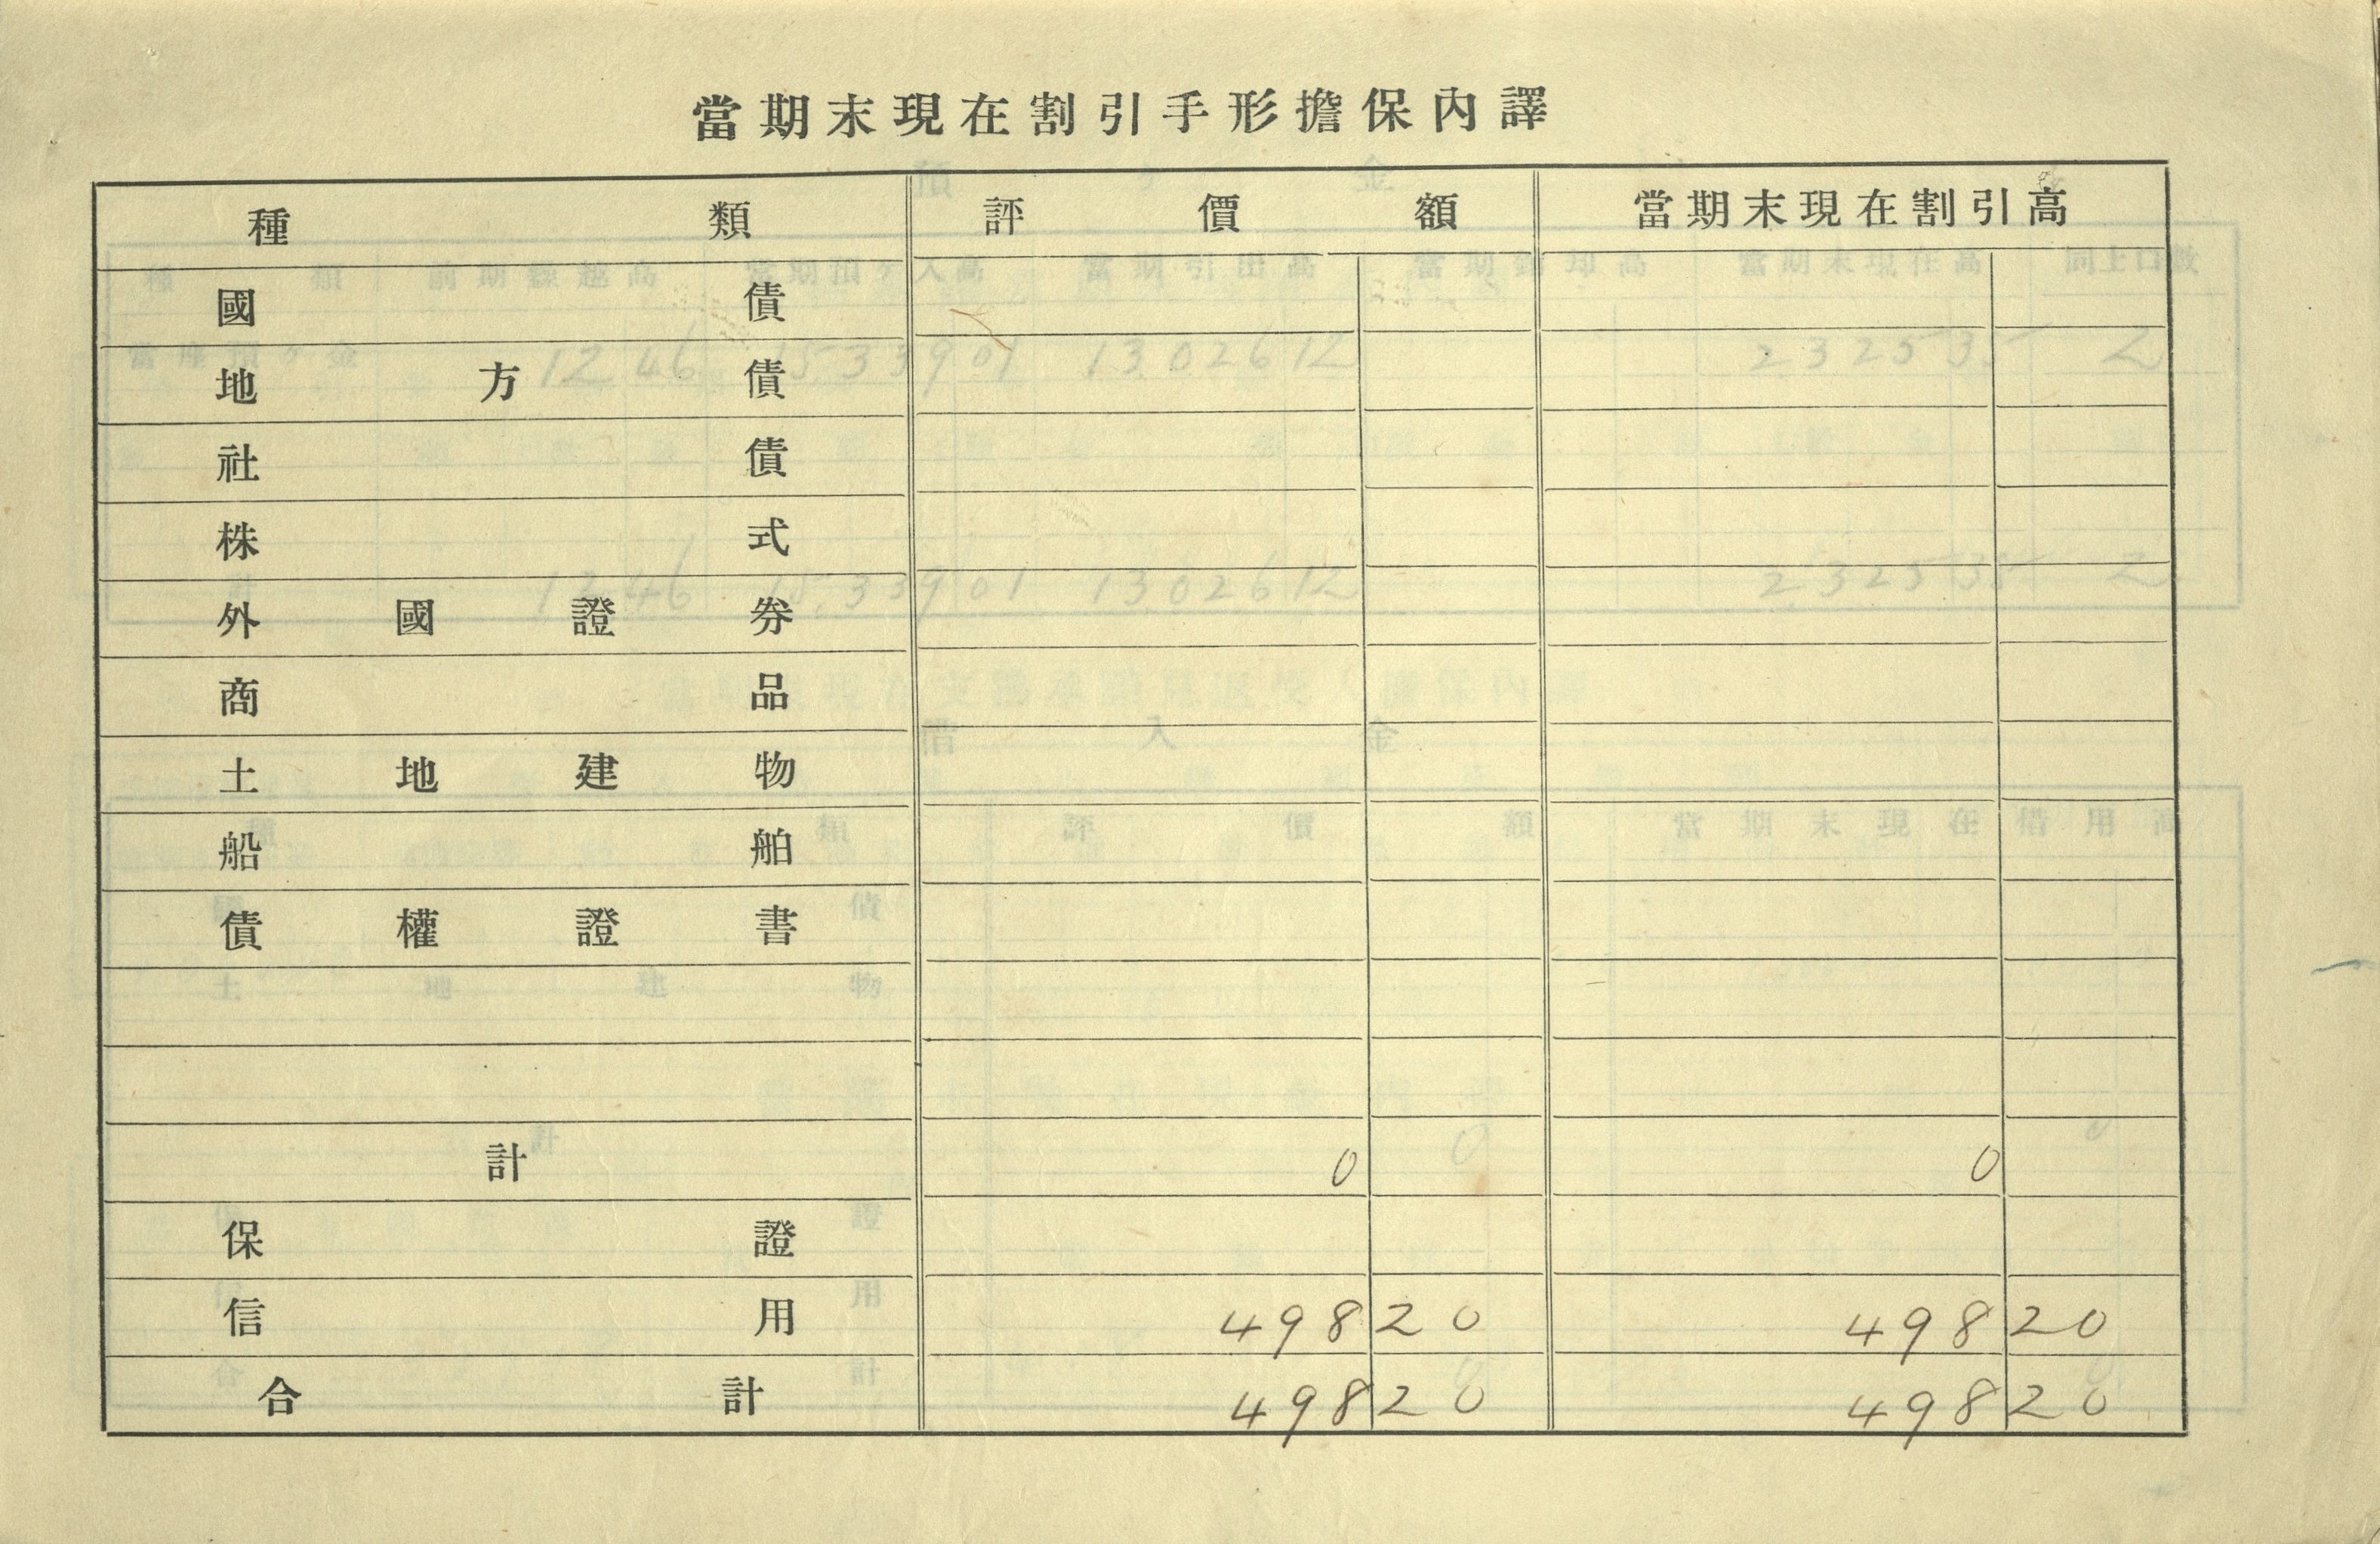 當期末現在割引手形擔保內譯
種類 評價額 當期末現在割引高
國債
地方債
社債
株式
外國證券
商品
土地建物
船舶
債權證書
計 0 0
保證
信用 498 20 498 20
合計 498 20 498 20